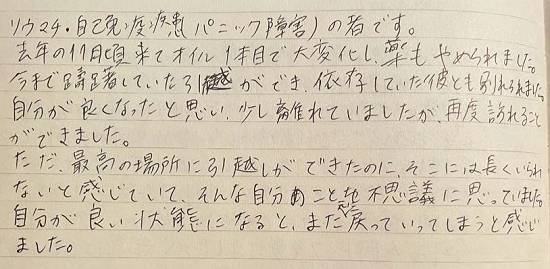 リウマチ・自己免疫疾患(パニック障害)の者です。
去年の11月頃来てオイル1本目で大変化し、薬もやめられました。
今まで躊躇していた引越ができ、依存していた彼とも別れられました
自分が良くなったと思い、少し離れていましたが、再度訪れること
ができました。
ただ、最高の場所に引越しができたのに、そこには長くいられ
ないと感じていて、そんな自分のことを不思議に思っていました。
自分が良い状態になると、また元に戻っていってしまうと感じ
ました。